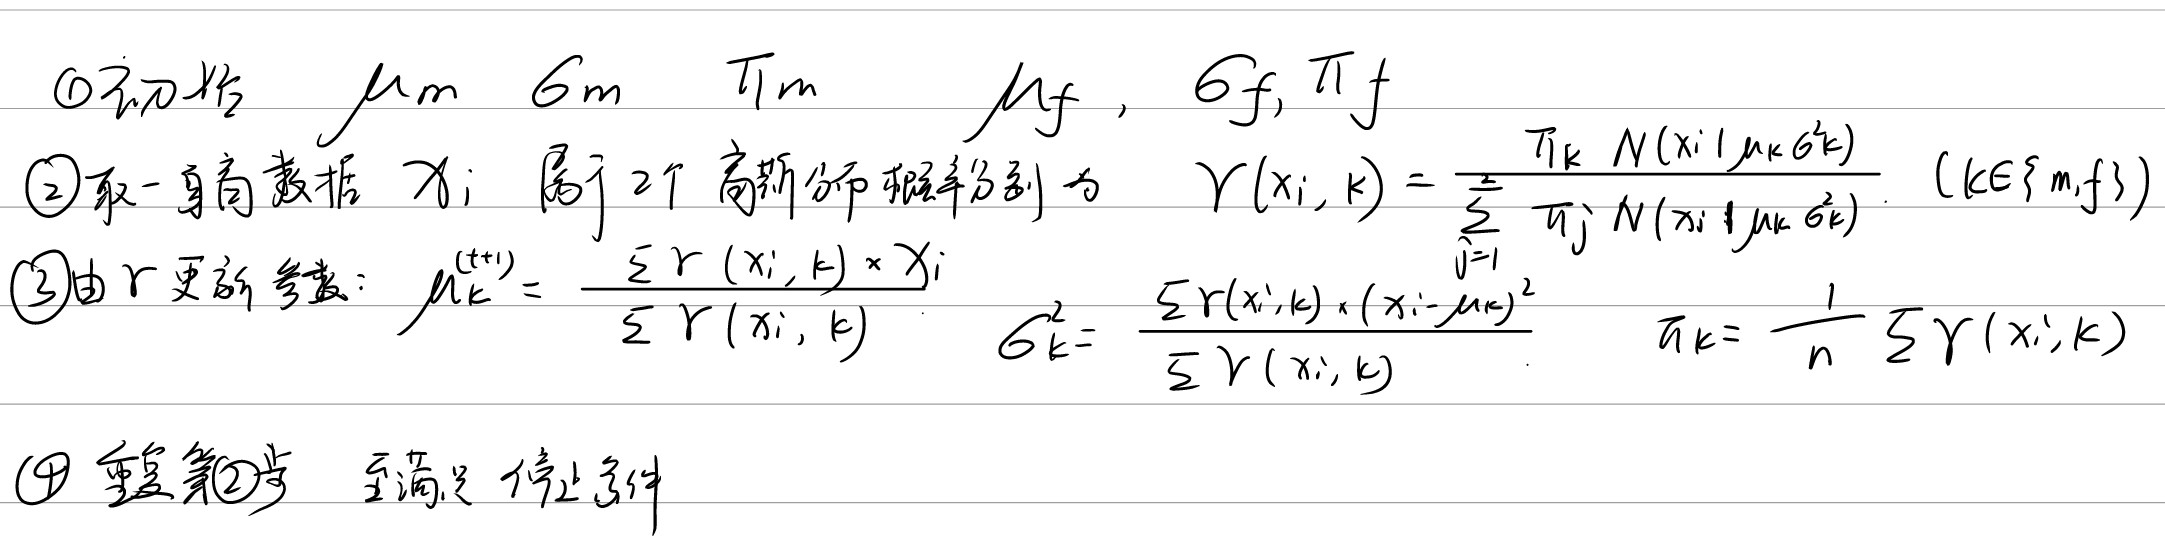 ①初始 μm σm πm μf, σf, πf
②取一身高数据 xi 属于2个高斯分布概率分别为 γ(xi, k) = πk N(xi | μk σ²k) / Σ_{j=1}^{2} πj N(xi | μk σ²k) (k∈{m,f})
③由γ更新参数: μk^(t+1) = Σγ(xi, k) × xi / Σγ(xi, k) σk² = Σγ(xi, k) × (xi - μk)² / Σγ(xi, k) πk = 1/n Σγ(xi, k)
④ 重复第②步 至满足停止条件